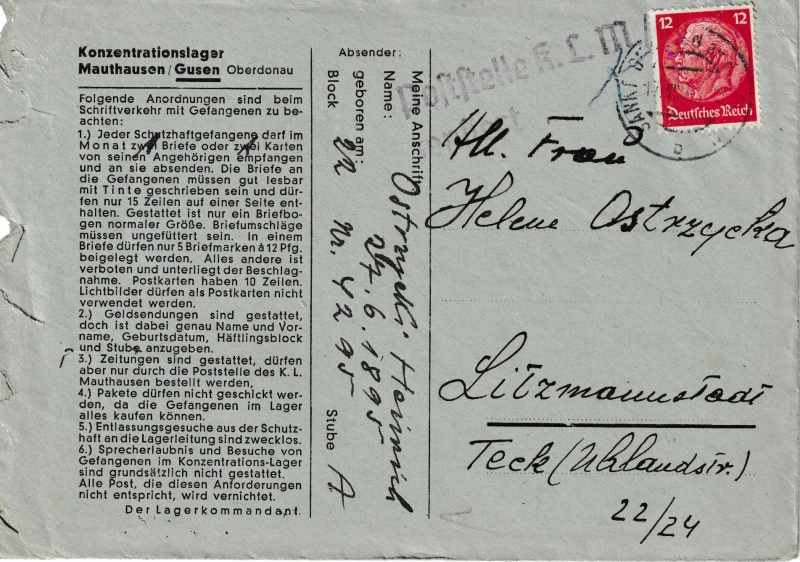 Konzentrationslager
Mauthausen/Gusen Oberdonau
Folgende Anordnungen sind beim
Schriftverkehr mit Gefangenen zu be-
achten:
1.) Jeder Schutzhaftgefangene darf im
Monat zwei Briefe oder zwei Karten
von seinen Angehörigen empfangen
und an sie absenden. Die Briefe an
die Gefangenen müssen gut lesbar
mit Tinte geschrieben sein und dür-
fen nur 15 Zeilen auf einer Seite ent-
halten. Gestattet ist nur ein Briefbo-
gen normaler Größe. Briefumschläge
müssen ungefüttert sein. In einem
Briefe dürfen nur 5 Briefmarken à 12 Pfg.
beigelegt werden. Alles andere ist
verboten und unterliegt der Beschlag-
nahme. Postkarten haben 10 Zeilen.
Lichtbilder dürfen als Postkarten nicht
verwendet werden.
2.) Geldsendungen sind gestattet,
doch ist dabei genau Name und Vor-
name, Geburtsdatum, Häftlingsblock
und Stube anzugeben.
3.) Zeitungen sind gestattet, dürfen
aber nur durch die Poststelle des K. L.
Mauthausen bestellt werden,
4.) Pakete dürfen nicht geschickt wer-
den, da die Gefangenen im Lager
alles kaufen können.
5.) Entlassungsgesuche aus der Schutz-
haft an die Lagerleitung sind zwecklos.
6.) Sprecherlaubnis und Besuche von
Gefangenen im Konzentrations-Lager
sind grundsätzlich nicht gestattet.
Alle Post, die diesen Anforderungen
nicht entspricht, wird vernichtet.
Der Lagerkommandant.
Absender:
Meine Anschrift
Name: Ostrzycki Heinrich
geboren am: 27.6.1895
Block 22 Nr. 4295 Stube A
Poststelle K. L. M
12 12
Deutsches Reich
SANKT
An. Frau
Helene Ostrzycka
Litzmannstadt
Teck (Uhlandstr.)
22/24